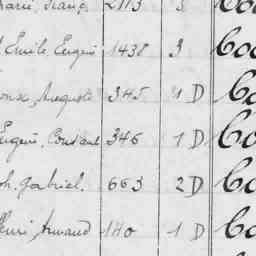 2113
Emile Eugène 1438 3 Co
Auguste 345 1 D Co
Eugène, Constant 346 1 D Co
Gabriel. 663 2 D Co
Henri Armand 140 1 D Co